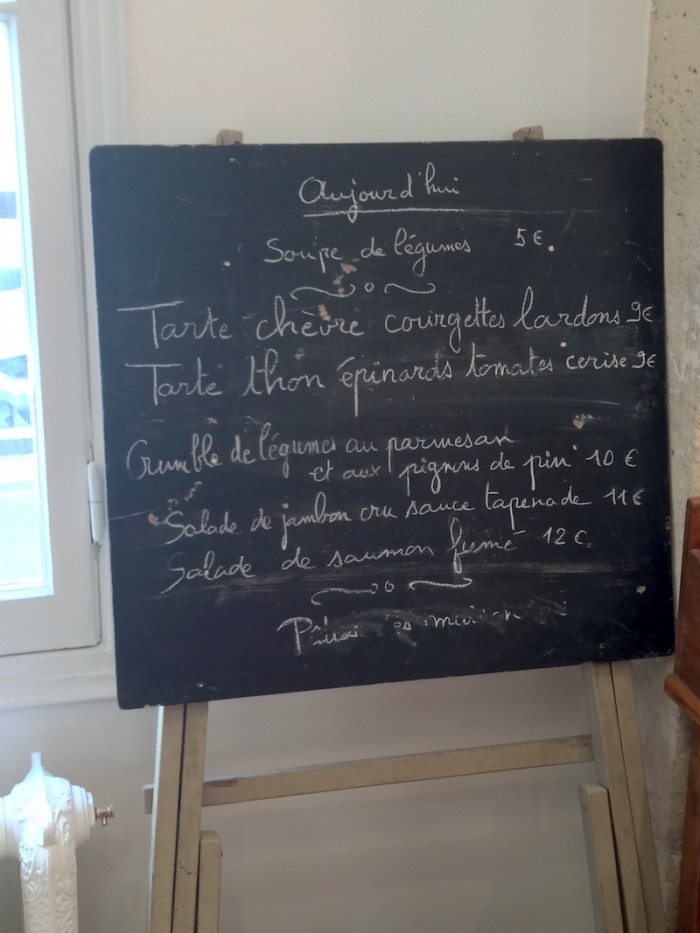 Aujourd'hui
Soupe de légumes 5€.
Tarte chèvre courgettes lardons 9€
Tarte thon épinards tomates cerise 9€
Crumble de légumes au parmesan
et aux pignons de pin 10 €
Salade de jambon cru sauce tapenade 11€
Salade de saumon fumé 12€.